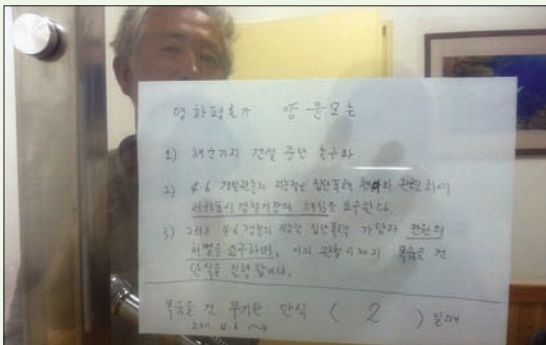 영화평론가 양윤모는
1) 해군기지 건설 중단 촉구와
2) 4.6 경찰관들의 집단폭력 관련하여
서귀포시 경찰서장의 요구한다
3) 4.6 경찰의 집단폭력 가담자 전원의
처벌을 요구하며, 이의 관철시까지 목숨을 건
단식을 진행합니다.
목숨을 건 무기한 단식 ( 2 ) 일째
2011. 4. 6 ~>